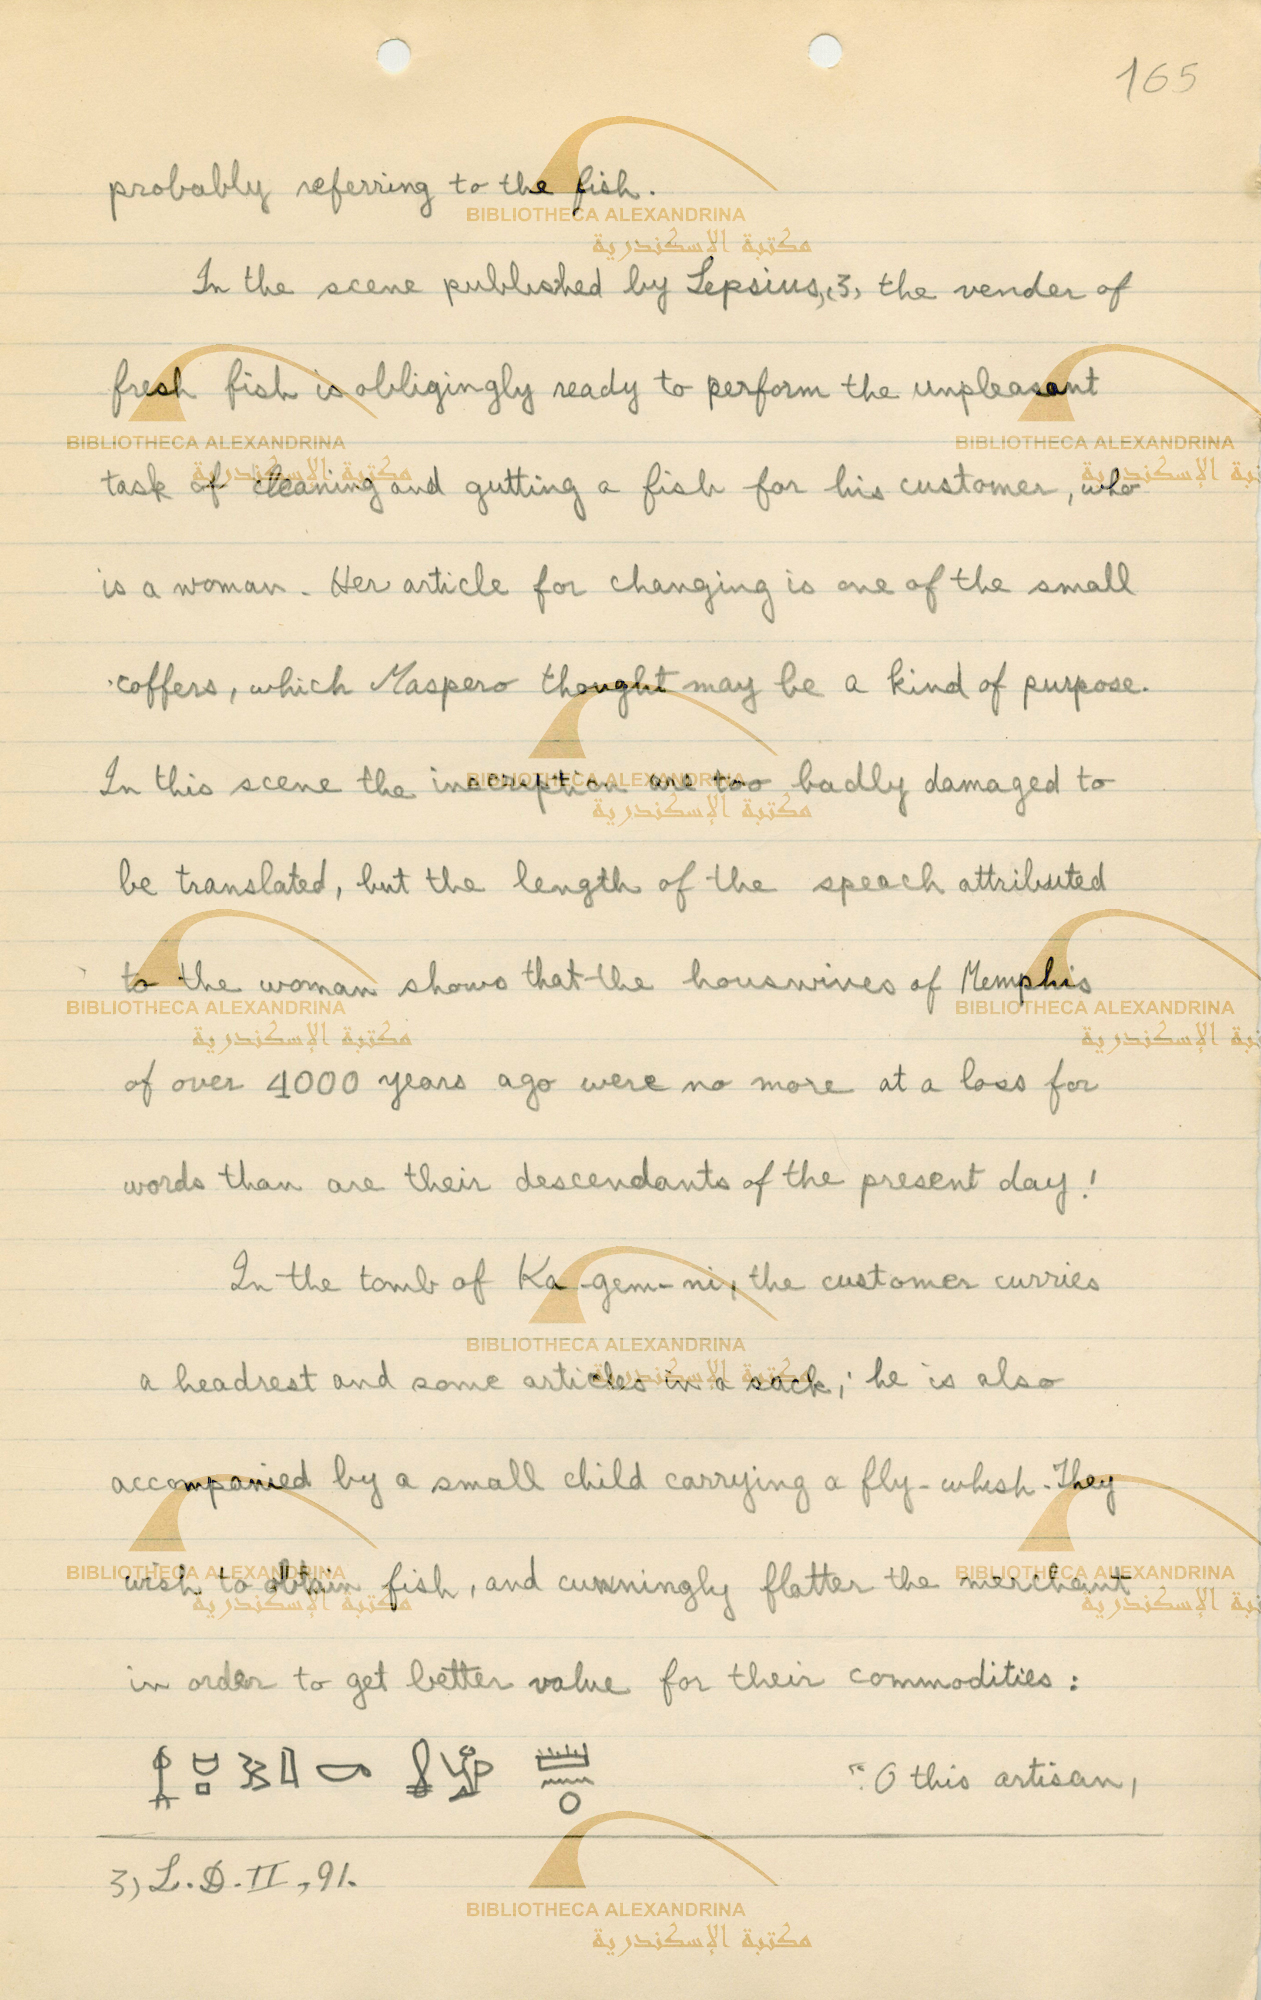 165
probably referring to the fish.
In the scene published by Lepsius,(3) the vender of
fresh fish is obligingly ready to perform the unpleasant
task of cleaning and gutting a fish for his customer, who
is a woman. Her article for changing is one of the small
coffers, which Maspero thought may be a kind of purpose.
In this scene the inscription are too badly damaged to
be translated, but the length of the speach attributed
to the woman shows that the houswives of Memphis
of over 4000 years ago were no more at a loss for
words than are their descendants of the present day!
In the tomb of Ka-gem-ni, the customer curries
a headrest and some articles in a sack; he is also
accompanied by a small child carrying a fly-whish. They
wish to obtain fish, and cunningly flatter the merchant
in order to get better value for their commodities:
"O this artisan,
3) L.D. II, 91.
BIBLIOTHECA ALEXANDRINA
مكتبة الإسكندرية